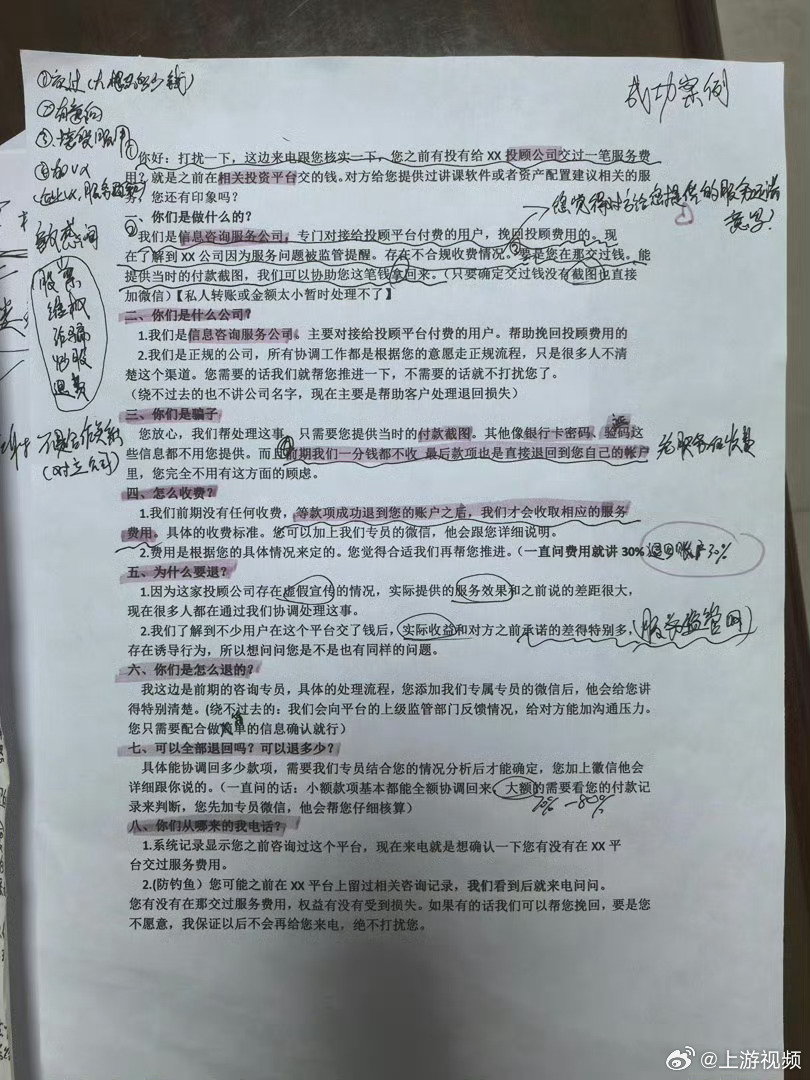 成功案例
①交过(大概交多少钱)
②有意向
③接收服务
④加VX
敏感词
股票
维权
诈骗
炒股
退费
(对立公司)
你好:打扰一下,这边来电跟您核实一下,您之前有投有给 XX 投顾公司交过一笔服务费
用?就是之前在相关投资平台交的钱。对方给您提供过讲课软件或者资产配置建议相关的服
务,您还有印象吗?
您觉得对方给您提供的服务还满意吗?
一、你们是做什么的?
我们是信息咨询服务公司,专门对接给投顾平台付费的用户,挽回投顾费用的。现
在了解到 XX 公司因为服务问题被监管提醒。存在不合规收费情况。要是您在那交过钱。能
提供当时的付款截图,我们可以协助您这笔钱拿回来。(只要确定交过钱没有截图也直接
加微信)【私人转账或金额太小暂时处理不了】
二、你们是什么公司?
1.我们是信息咨询服务公司。主要对接给投顾平台付费的用户。帮助挽回投顾费用的
2.我们是正规的公司,所有协调工作都是根据您的意愿走正规流程,只是很多人不清
楚这个渠道。您需要的话我们就帮您推进一下,不需要的话就不打扰您了。
(绕不过去的也不讲公司名字,现在主要是帮助客户处理退回损失)
三、你们是骗子
您放心,我们帮处理这事,只需要您提供当时的付款截图。其他像银行卡密码、验码这
些信息都不用您提供。而且前期我们一分钱都不收 最后款项也是直接退回到您自己的帐户
里,您完全不用有这方面的顾虑。
四、怎么收费?
1.我们前期没有任何收费,等款项成功退到您的账户之后,我们才会收取相应的服务
费用。具体的收费标准。您可以加上我们专员的微信,他会跟您详细说明。
2.费用是根据您的具体情况来定的。您觉得合适我们再帮您推进。(一直问费用就讲 30%
退回账户30%
五、为什么要退?
1.因为这家投顾公司存在虚假宣传的情况,实际提供的服务效果和之前说的差距很大,
现在很多人都在通过我们协调处理这事。
2.我们了解到不少用户在这个平台交了钱后,实际收益和对方之前承诺的差得特别多,
存在诱导行为,所以想问问您是不是也有同样的问题。
六、你们是怎么退的?
我这边是前期的咨询专员,具体的处理流程,您添加我们专属专员的微信后,他会给您讲
得特别清楚。(绕不过去的:我们会向平台的上级监管部门反馈情况,给对方能加沟通压力。
您只需要配合做简单的信息确认就行)
七、可以全部退回吗?可以退多少?
具体能协调回多少款项,需要我们专员结合您的情况分析后才能确定,您加上徽信他会
详细跟你说的。(一直问的话:小额款项基本都能全额协调回来,大额的需要看您的付款记
录来判断,您先加专员微信,他会帮您仔细核算)
70%-80%
八、你们从哪来的我电话?
1.系统记录显示您之前咨询过这个平台,现在来电就是想确认一下您有没有在 XX 平
台交过服务费用。
2.(防钓鱼)您可能之前在 XX 平台上留过相关咨询记录,我们看到后就来电问问。
您有没有在那交过服务费用,权益有没有受到损失。如果有的话我们可以帮您挽回,要是您
不愿意,我保证以后不会再给您来电,绝不打扰您。
@上游视频